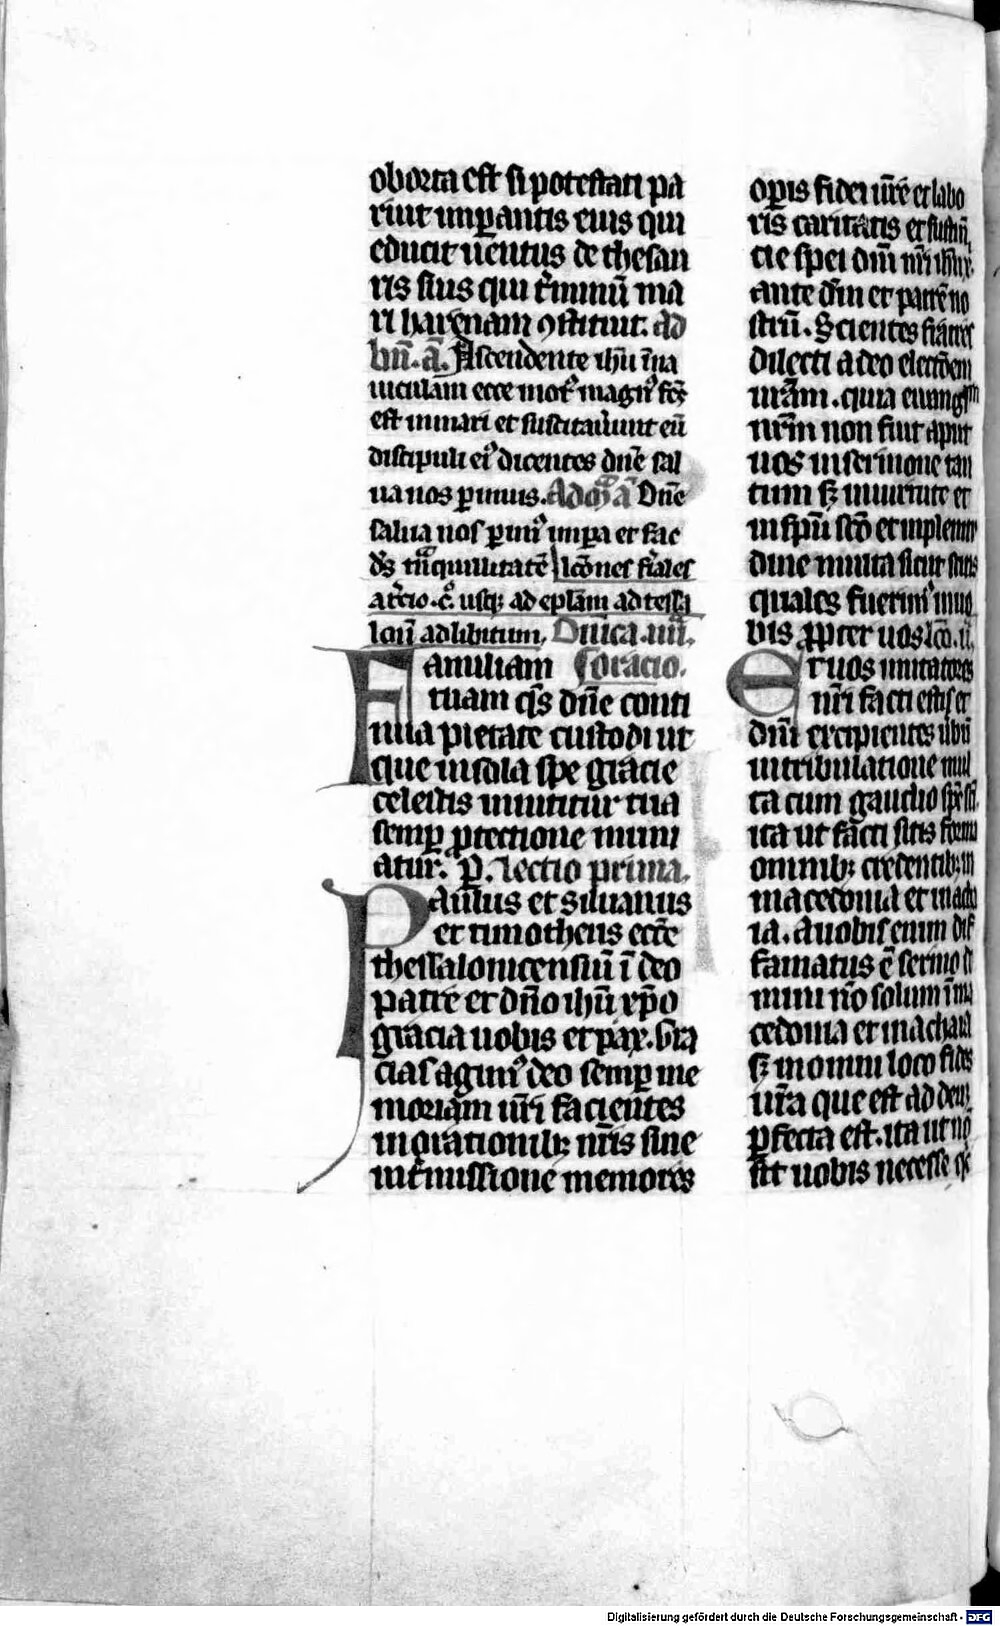 oborta est si potestati pa
riut imꝑantis eius qui
educit uentus de thesau
ris suis qui t͛minū ma
ri harenam ꝯstituit. ad
bn̄. ā. Ascendente ihū ī na
uiculam ecce motꝰ magnꝰ fc̄s
est in mari et suscitaue͛unt eū
discipuli eiꝰ dicentes dn̄e sal
ua nos perimus. Ad ā Dn̄e
salua nos ꝑimꝰ impera et fac
ds̄ tͣnquillitatē lc̄ones fr̄ales
usqꝫ ad epl̄am ad tessa
loñ ad libitum. Dn̄ica .iiii.
Familiam Coracio.
tuam qs̄ dn̄e conti
nua pietate custodi ut
que in sola spe gracie
celestis innititur tua
semꝑ ꝓtectione muni
atur. P. lectio prima.
Paulus et siluanus
et timotheus ecc̄e
thessalonicensiū ī deo
patre et dn̄o ihū xp̄o
gracia uobis et pax. Gra
cias agimꝰ deo semꝑ me
moriam ur̄i facientes
in orationibꝫ nr̄is sine
int͛missione memores
oꝑis fidei ur̄e et labo
ris caritatis et sustin̄
cie spei dn̄i nr̄i ihū x
ante dm̄ et patrē no
strū. Scientes fratres
dilecti a deo electōem
ur̄am. quia euangͫ
nr̄m non fuit aput
uos in sermone tan
tum sꝫ in uirtute et
in sp̄u sc̄o et in plenitu
dine multa sicut scitis
quales fuerimꝰ in uo
bis ꝓpter uos lc̄o. ii.
Et uos imitatores
nr̄i facti estis et
dn̄i excipientes ūbū
in tribulatione mul
ta cum gaudio sp̄s sc̄i
ita ut facti sitis forma
omnibꝫ credentibꝫ in
macedonia et in acha
ia. A uobis enim dif
famatus ē sermo d
mini nō solum ī ma
cedonia et in achaia
sꝫ in omni loco fides
ur̄a que est ad deū
ꝑfecta est. ita ut nō
sit uobis necesse
Digitalisierung gefördert durch die Deutsche Forschungsgemeinschaft - DFG